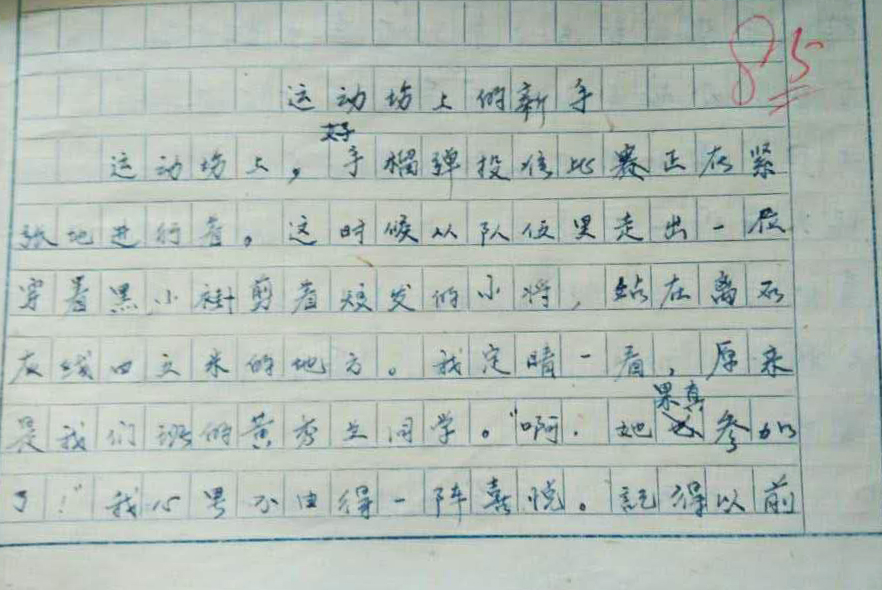 85
运动场上的新手
好
运动场上，手榴弹投准比赛正在紧
张地进行着。这时候从队伍里走出一位
穿着黑小褂剪着短发的小将，站在离石
灰线四五米的地方。我定晴一看，原来
果真
是我们班的黄秀兰同学。“啊．她参加
了！”我心里不由得一阵喜悦。記得以前